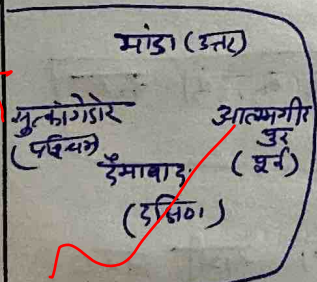 मांडा (उत्तर)
सुत्कांगेडोर
(पश्चिम)
आलमगीर
पुर
(पूर्व)
दैमाबाद
(दक्षिण)